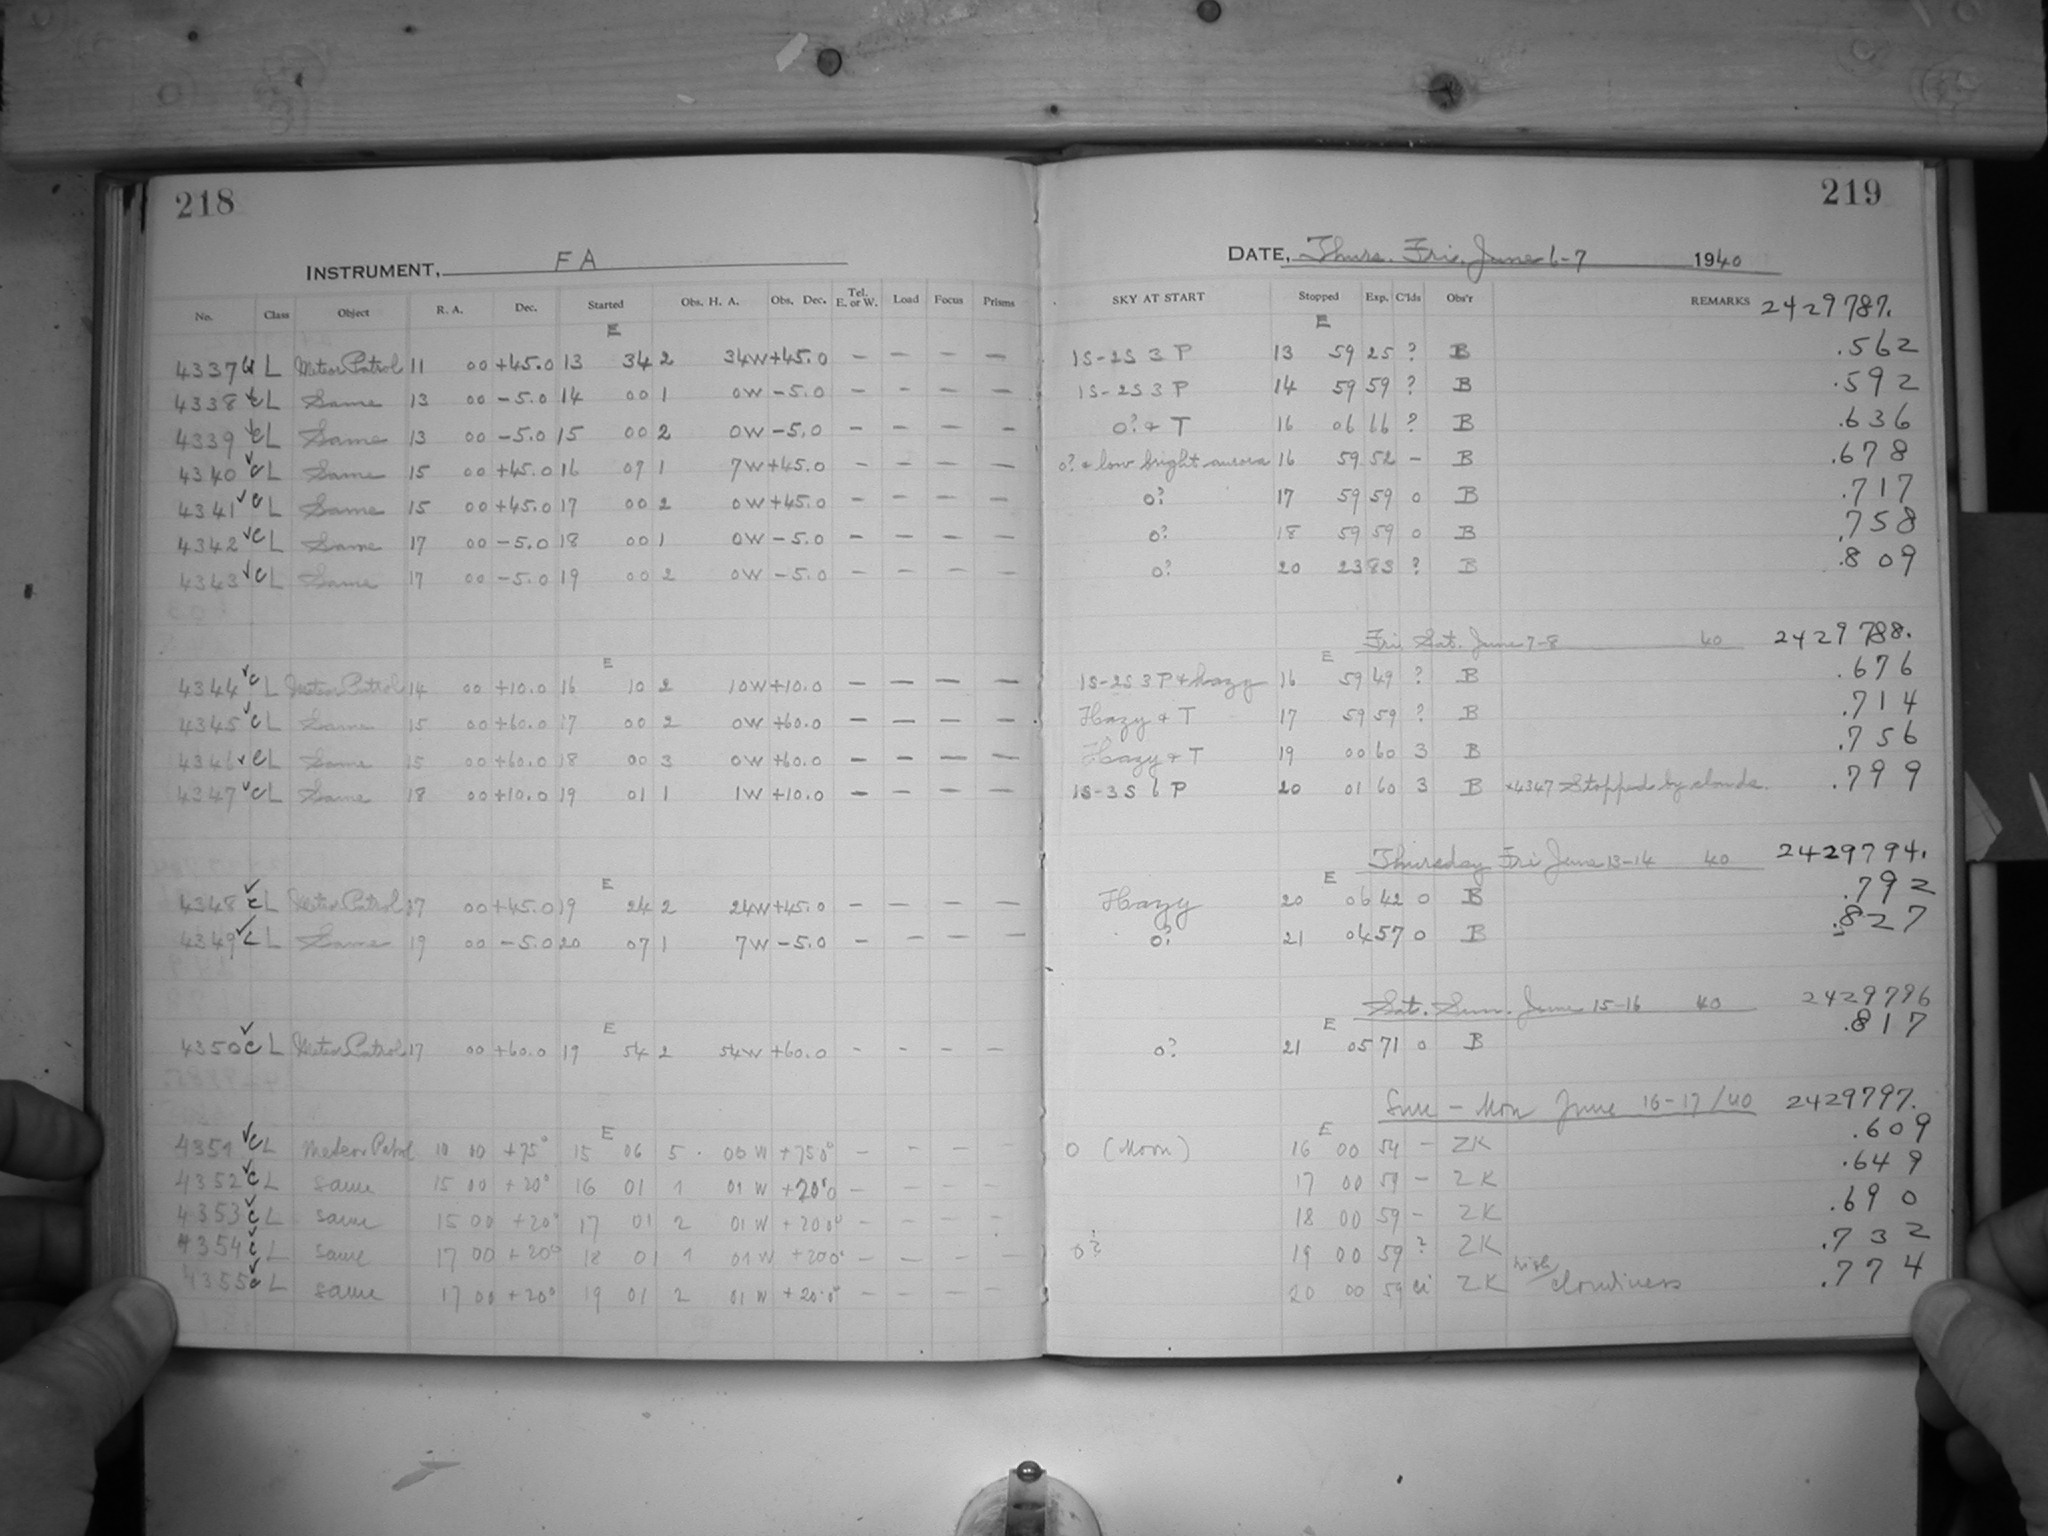 218
INSTRUMENT, FA
No. Class Object R. A. Dec. Started Obs. H. A. Obs. Dec. Tel. E. or W. Load Focus Prisms
E
4337 L Meteor Patrol 11 00 +45.0 13 34 2 34W +45.0 — — — —
4338 ✓C L Same 13 00 -5.0 14 00 1 0W -5.0 — - — —
4339 ✓C L Same 13 00 -5.0 15 00 2 0W -5.0 — — — —
4340 ✓C L Same 15 00 +45.0 16 07 1 7W +45.0 — — — —
4341 ✓C L Same 15 00 +45.0 17 00 2 0W +45.0 — — — —
4342 ✓C L Same 17 00 -5.0 18 00 1 0W -5.0 — — — —
4343 ✓C L Same 17 00 -5.0 19 00 2 0W -5.0 — — — —
E
4344 ✓C L Meteor Patrol 14 00 +10.0 16 10 2 10W +10.0 — — — —
4345 ✓C L Same 15 00 +60.0 17 00 2 0W +60.0 — — — —
4346 ✓C L Same 15 00 +60.0 18 00 3 0W +60.0 — — — —
4347 ✓C L Same 18 00 +10.0 19 01 1 1W +10.0 — — — —
E
4348 ✓C L Meteor Patrol 17 00 +45.0 19 24 2 24W +45.0 — — — —
4349 ✓C L Same 19 00 -5.0 20 07 1 7W -5.0 — — — —
E
4350 ✓C L Meteor Patrol 17 00 +60.0 19 54 2 54W +60.0 — — — —
E
4351 ✓C L Meteor Patrol 10 00 +75° 15 06 5 06 W +75 0° — — —
4352 ✓C L same 15 00 +20° 16 01 1 01 W +20°0 — — — —
4353 ✓C L same 15 00 +20° 17 01 2 01 W +20 0° — — — —
4354 ✓C L same 17 00 +20° 18 01 1 01 W +20 0° — — — —
4355 ✓C L same 17 00 +20° 19 01 2 01 W +20.0° — — — —
219
DATE, Thurs. Fri. June 6-7 1940
SKY AT START Stopped Exp. C'lds Obs'r REMARKS 2429787.
E
1S-2S 3 P 13 59 25 ? B .562
1S-2S 3 P 14 59 59 ? B .592
0? & T 16 06 66 ? B .636
0? & low bright aurora 16 59 52 - B .678
0? 17 59 59 0 B .717
0? 18 59 59 0 B .758
0? 20 23 83 ? B .809
Fri. Sat. June 7-8 40 2429788.
E
1S-2S 3 P & hazy 16 59 49 ? B .676
Hazy & T 17 59 59 ? B .714
Hazy & T 19 00 60 3 B .756
1S-3S 6 P 20 01 60 3 B 4347 Stopped by clouds. .799
Thursday Fri June 13-14 40 2429794.
E
Hazy 20 06 42 0 B .792
0? 21 04 57 0 B .827
Sat. Sun. June 15-16 40 2429796
E
0? 21 05 71 0 B .817
Sun - Mon June 16-17/40 2429797.
E
0 (Moon) 16 00 54 - ZK .609
17 00 59 - ZK .649
18 00 59 - ZK .690
0? 19 00 59 ? ZK .732
20 00 59 ci ZK high cloudiness .774